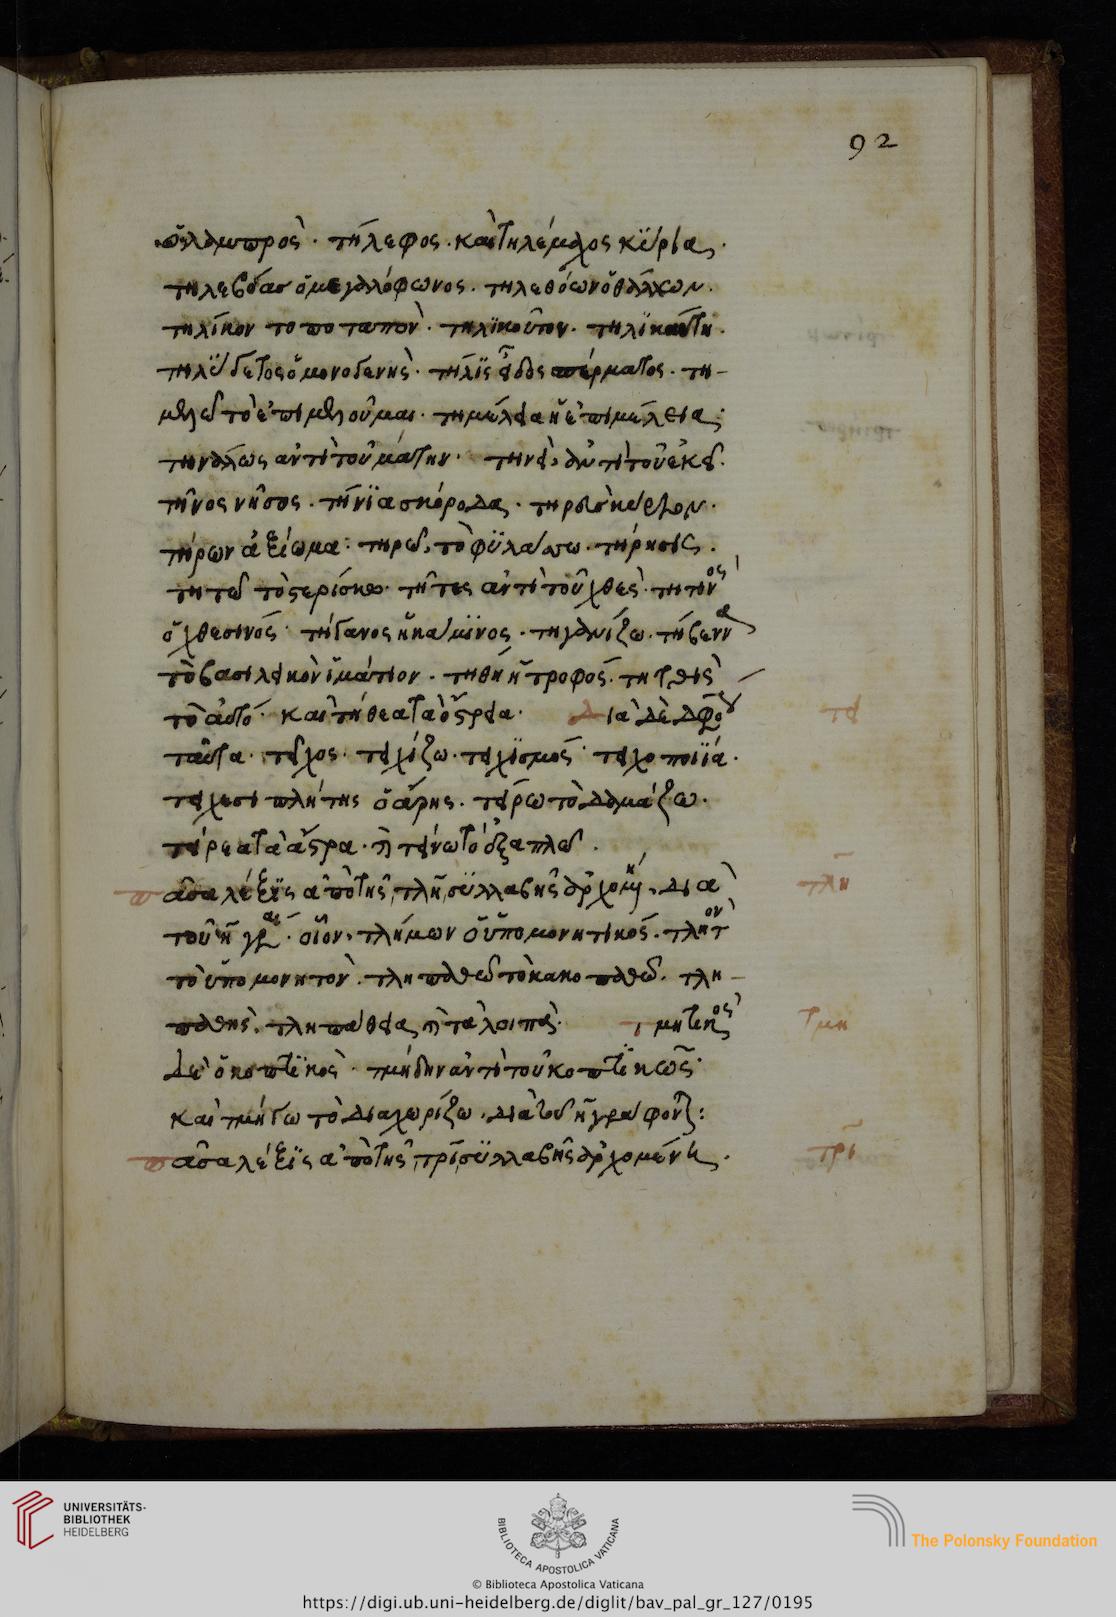 92
ὁ λαμπρός. τήλεφος. καὶ τηλέμαχος κύρια.
τηλεβόας ὁ μεγαλόφωνος. τηλεθόων ὁ θάλλων.
τηλίκον τοποταπὸν. τηλικοῦτον. τηλικαύτη.
τηλύγετος ὁ μονογενής. τῆλις εἶδος σπέρματος. τη-
μελῶ τὸ ἐπιμελοῦμαι. τημέλεια ἡ ἐπιμέλεια.
τηνάλως ἀντὶ τοῦ μάτην. τηνεὶ, ἀντὶ τοῦ ἐκεῖ.
τῆνος νῆσος. τήνια σκόροδα.
τήρων ἀξίωμα. τηρῶ, τὸ φυλάττω. τήρησις.
τητῶ τὸ στερίσκω. τῆτες ἀντὶ τοῦ χθὲς. τητινός
ὁ χθεσινός. τήγανος ἡ κάμινος. τηγανίζω. τήβεννα
τὸ βασιλεικὸν ἱμάτιον. τηθὴ ἡ τροφός. τηθὶς
τὸ αὐτό. καὶ τήθεα τὰ ὄστρεα. Διὰ δὲ διφθόγγου
τει
ταῦτα. τεῖχος. τειχίζω. τειχισμός. τειχοποιΐα.
τειχεσιπλήτης ὁ ἄρης. τείρω τὸ δαμάζω.
τείρεα τὰ ἄστρα. ἢ τείνω τὸ ἐξαπλῶ.
πᾶσα λέξις ἀπὸ τῆς τλη συλλαβῆς ἀρχομένη, διὰ
τλη
τοῦ η γράφεται. οἷον, τλήμων ὁ ὑπομονητικός. τλητὸν
τὸ ὑπομονητὸν. τληπαθῶ τὸ κακοπαθῶ. τλη-
παθής. τληπάθεια, ἢ τὰ λοιπά. τμητικὸς
τμη
δὲ ὁ κοπτικός. τμήδην ἀντὶ τοῦ κοπτικῶς.
καὶ τμήγω τὸ διαχωρίζω. διὰ τοῦ η γράφονται:
πᾶσα λέξις ἀπὸ τῆς τρι συλλαβῆς ἀρχομένη.
τρι
UNIVERSITÄTS-
BIBLIOTHEK
HEIDELBERG
BIBLIOTECA APOSTOLICA VATICANA
The Polonsky Foundation
© Biblioteca Apostolica Vaticana
https://digi.ub.uni-heidelberg.de/diglit/bav_pal_gr_127/0195